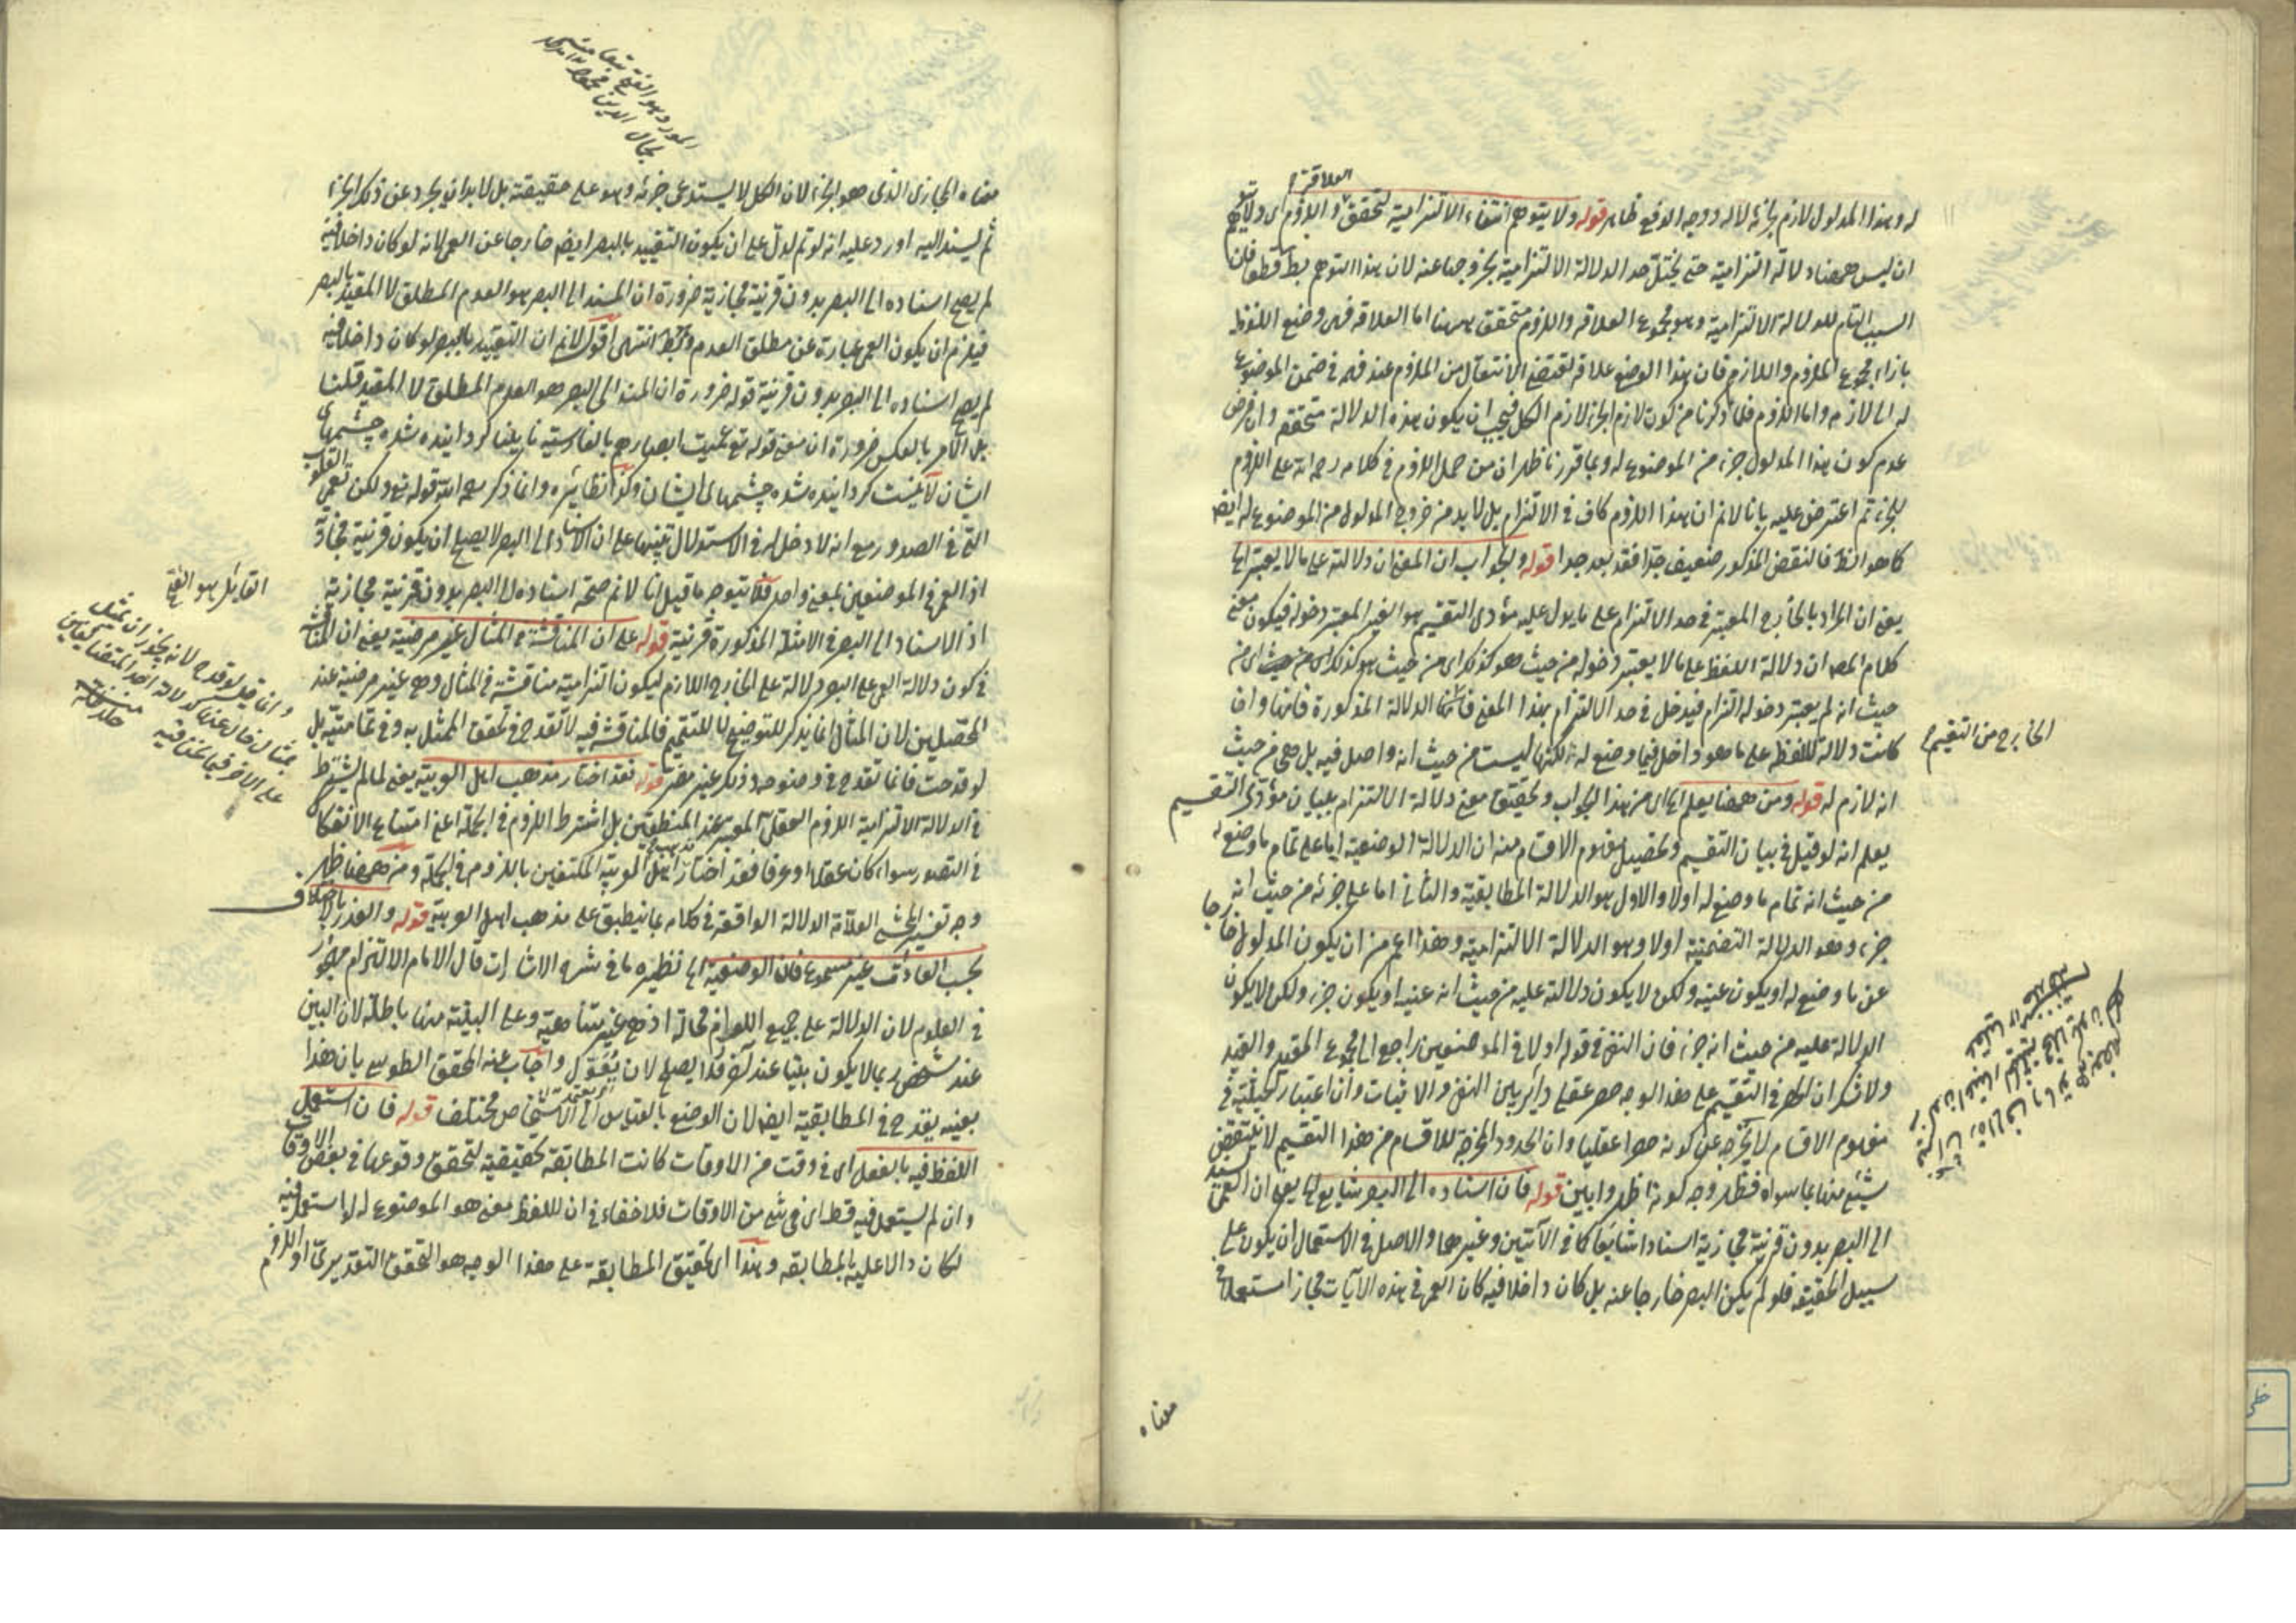 العلاقة و
له وهذا المدلول لازم لجزئه لا له ووجه الدفع ظاهر قوله ولا يتوهم انتفاء الالتزامية لتحقق واللزوم اى ولا يتوهم
ان ليس ههنا دلالة التزامية حتى يختل حد الدلالة الالتزامية بخروجها عنه لان هذا التوهم بط قطعا فان
السبب التام للدلالة الالتزامية وهو مجموع العلاقة واللزوم متحقق ههنا اما العلاقة فهى وضع اللفظ
بازاء مجموع الملزوم واللازم فان هذا الوضع علاقة تقتضى الانتقال من الملزوم عند فهمه في ضمن الموضوع
له الى لازمه واما اللزوم فلما ذكرنا من كون لازم الجزء لازم الكل فيجب ان يكون هذه الدلالة متحققة وان فرض
عدم كون هذا المدلول جزء من الموضوع له وبما قررنا ظهر ان من حمل اللزوم في كلامه رحمه الله على اللزوم
للجزء ثم اعترض عليه بانا لا نم ان هذا اللزوم كاف في الالتزام بل لا بد من خروج المدلول من الموضوع له ايض
كما هو الظ فالنقض المذكور ضعيف جدا فقد بعد جدا قوله والجواب ان المعنى ان دلالته على ما لا يعتبر الخ
يعنى ان المراد بالخارج المعتبر في حد الالتزام على ما يدل عليه مؤدى التقسيم هو الغير المعتبر دخوله فيكون معنى
كلام المص ان دلالة اللفظ على ما لا يعتبر دخوله من حيث هو كذلك اى من حيث هو كذلك اى من
حيث انه لم يعتبر دخوله التزام فيدخل في حد الالتزام بهذا المعنى الدلالة المذكورة فانها وان
كانت دلالة للفظ على ما هو داخل فيما وضع له لكنها ليست من حيث انه داخل فيه بل هى من حيث
الخارج من التقسيم
انه لازم له قوله ومن ههنا يعلم الخ اى من هذا الجواب وتحقيق معنى دلالة الالتزام ببيان مؤدى التقسيم
يعلم انه لو قيل في بيان التقسيم وتحصيل مفهوم الاقسام منه ان الدلالة الوضعية اما على تمام ما وضع له
من حيث انه تمام ما وضع له اولا والاول هو الدلالة المطابقية والثانى اما على جزئه من حيث انه
جزء وهو الدلالة التضمنية اولا وهو الدلالة الالتزامية وهذا اعم من ان يكون المدلول خارجا
عن ما وضع له او يكون عينه ولكن لا يكون دلالته عليه من حيث انه عينه او يكون جزء ولكن لا يكون
الدلالة عليه من حيث انه جزء فان النفى في قوله اولا في الموضعين راجع الى مجموع المقيد والقيد
ولا شك ان الحصر في التقسيم على هذا الوجه حصر عقلى دائر بين النفى والاثبات وان اعتبار الحيثية في
مفهوم الاقسام لا يخرجه عن كونه حصرا عقليا وان الحدود المخرجة للاقسام من هذا التقسيم لا ينتقض
شيئ منها بما سواه فظهر وجه كونه اظهر وابين قوله فان اسناده الى البصر شايع الخ يعنى ان العمى
الى البصر بدون قرينة مجازية اسنادا شايعا كما في الآيتين وغيرهما والاصل في الاستعمال ان يكون على
سبيل الحقيقة فلو لم يكن البصر خارجا عنه بل كان داخلا فيه كان العمى في هذه الآيات مجاز استعماله
معناه
المورد هو الفتح
جمال الدين محمود
معناه المجازى الذى هو الجزء لان الكل لا يستدعى جزئه وهو على حقيقته بل لا بد ان يجرد عن ذلك الجزء
ثم يسند اليه اورد عليه انه لو تم لدل على ان يكون التقييد بالبصر ايض خارجا عن العمى لانه لو كان داخلا فيه
لم يصح اسناده الى البصر بدون قرينة مجازية ضرورة ان المسند الى البصر هو العدم المطلق لا المقيد بالبصر
فيلزم ان يكون العمى عبارة عن مطلق العدم انتهى اقول لا نم ان التقييد بالبصر لو كان داخلا فيه
لم يصح اسناده الى البصر بدون قرينة قوله ضرورة ان المسند الى البصر هو العدم المطلق لا المقيد قلنا
بل الامر بالعكس ضرورة ان معنى قوله تع عميت ابصارهم بالفارسية نابينا كردانيده شده چشمهاى
ايشان لا نيست كردانيده شده چشمهاى ايشان وكذا نظائره وانما ذكر رحمه الله قوله تع ولكن تعمى القلوب
التى في الصدور مع انه لا دخل له في الاستدلال تنبيها على ان الاسناد الى البصر لا يصلح ان يكون قرينة مجازية
اذ العمى في الموضعين بمعنى واحد فلا يتوجه ما قيل انا لا نم صحة اسناده الى البصر بدون قرينة مجازية
القائل هو الفتح
اذ الاسناد الى البصر في الامثلة المذكورة قرينة قوله على ان المناقشة في المثال غير مرضية يعنى ان المناقشة
في كون دلالة العمى على البصر دلالة على الخارج اللازم ليكون التزامية مناقشة في المثال وهى غير مرضية عند
المحصلين لان المثال انما يذكر للتوضيح لا للتتميم فالمناقشة فيه لا تقدح في تحقق الممثل به وفى تماميته بل
لو قدحت فانما تقدح في وضوحه وذلك غير مضر قوله فقد اختار مذهب اهل العربية يعنى لما لم يشترط
في الدلالة الالتزامية اللزوم العقلى المعتبر عند المنطقيين بل اشترط اللزوم في الجملة اعنى امتناع الانفكاك
في التصور سواء كان عقلا او عرفا فقد اختار مذهب اهل العربية المكتفين باللزوم في الجملة ومن ههنا ظهر
وجه تفسير المحشى العلامة الدلالة الواقعة في كلامه بما ينطبق على مذهب اهل العربية قوله والعذر باختلاف
بحسب العادات غير مسموع فان الوضعية الخ نظيره ما في شرح الاشارات قال الامام الالتزام مهجور
في العلوم لان الدلالة على جميع اللوازم محالة اذ هى غير متناهية وعلى البينة منها باطلة لان البين
عند شخص ربما لا يكون بينا عند آخر فلا يصلح لان يعول واجاب عنه المحقق الطوسى بان هذا
بعينه يقدح في المطابقية ايض لان الوضع بالقياس الى الاشخاص مختلف قوله فان استعمل
اللفظ فيه بالفعل اى في وقت من الاوقات كانت المطابقة تحقيقية لتحقق وقوعها في بعض الاوقات
وان لم يستعمل فيه قط اى في شيئ من الاوقات فلا خفاء في ان للفظ معنى هو الموضوع له لو استعمل فيه
لكان دالا عليه بالمطابقة وهذا اى تحقيق المطابقة على هذا الوجه هو التحقق التقديرى او اللزوم